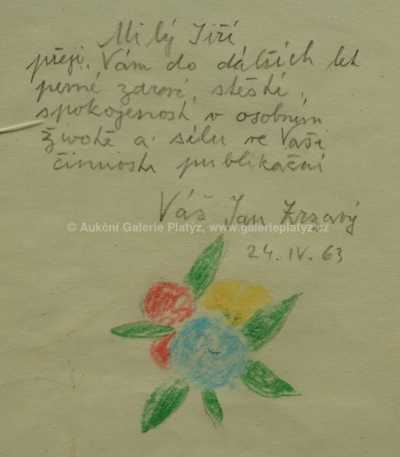 Milý Jiří
přeji Vám do dalších let
pevné zdraví, štěstí,
spokojenost v osobním
životě a sílu ve Vaší
činnosti publikační
Váš Jan Zrzavý
© Aukční Galerie Platýz, www.galerieplatyz.cz
24.IV.63